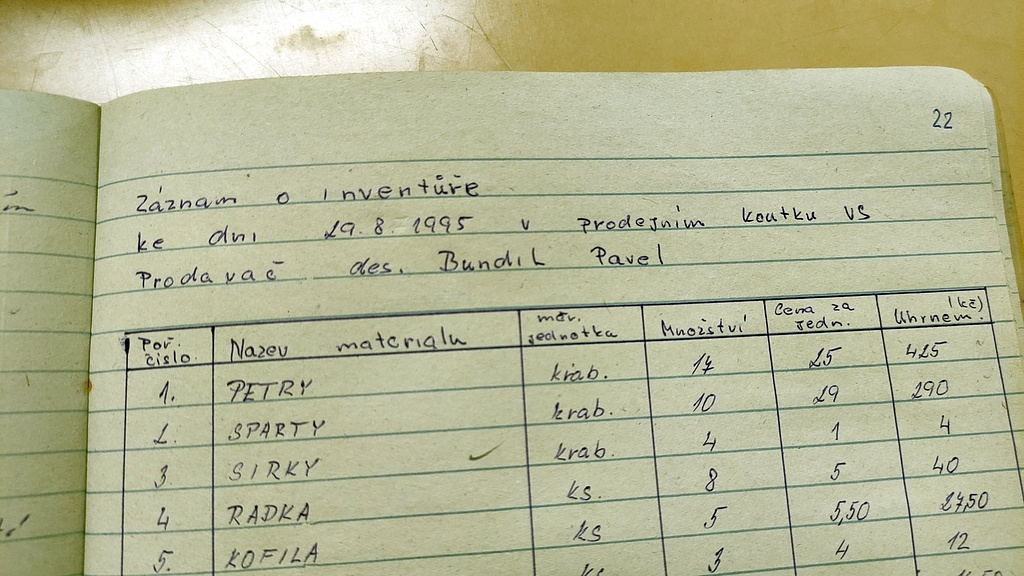 22
Záznam o inventůře
ke dni 29.8.1995 v prodejním koutku VS
Prodavač des. Bundil Pavel
Poř. číslo Nazev materialu měr. jednotka Množství Cena za jedn. Uhrnem (kč)
1. PETRY krab. 17 25 425
2. SPARTY krab. 10 29 290
3. SIRKY krab. 4 1 4
4 RADKA ks. 8 5 40
5. KOFILA ks 5 5,50 27,50
ks 3 4 12